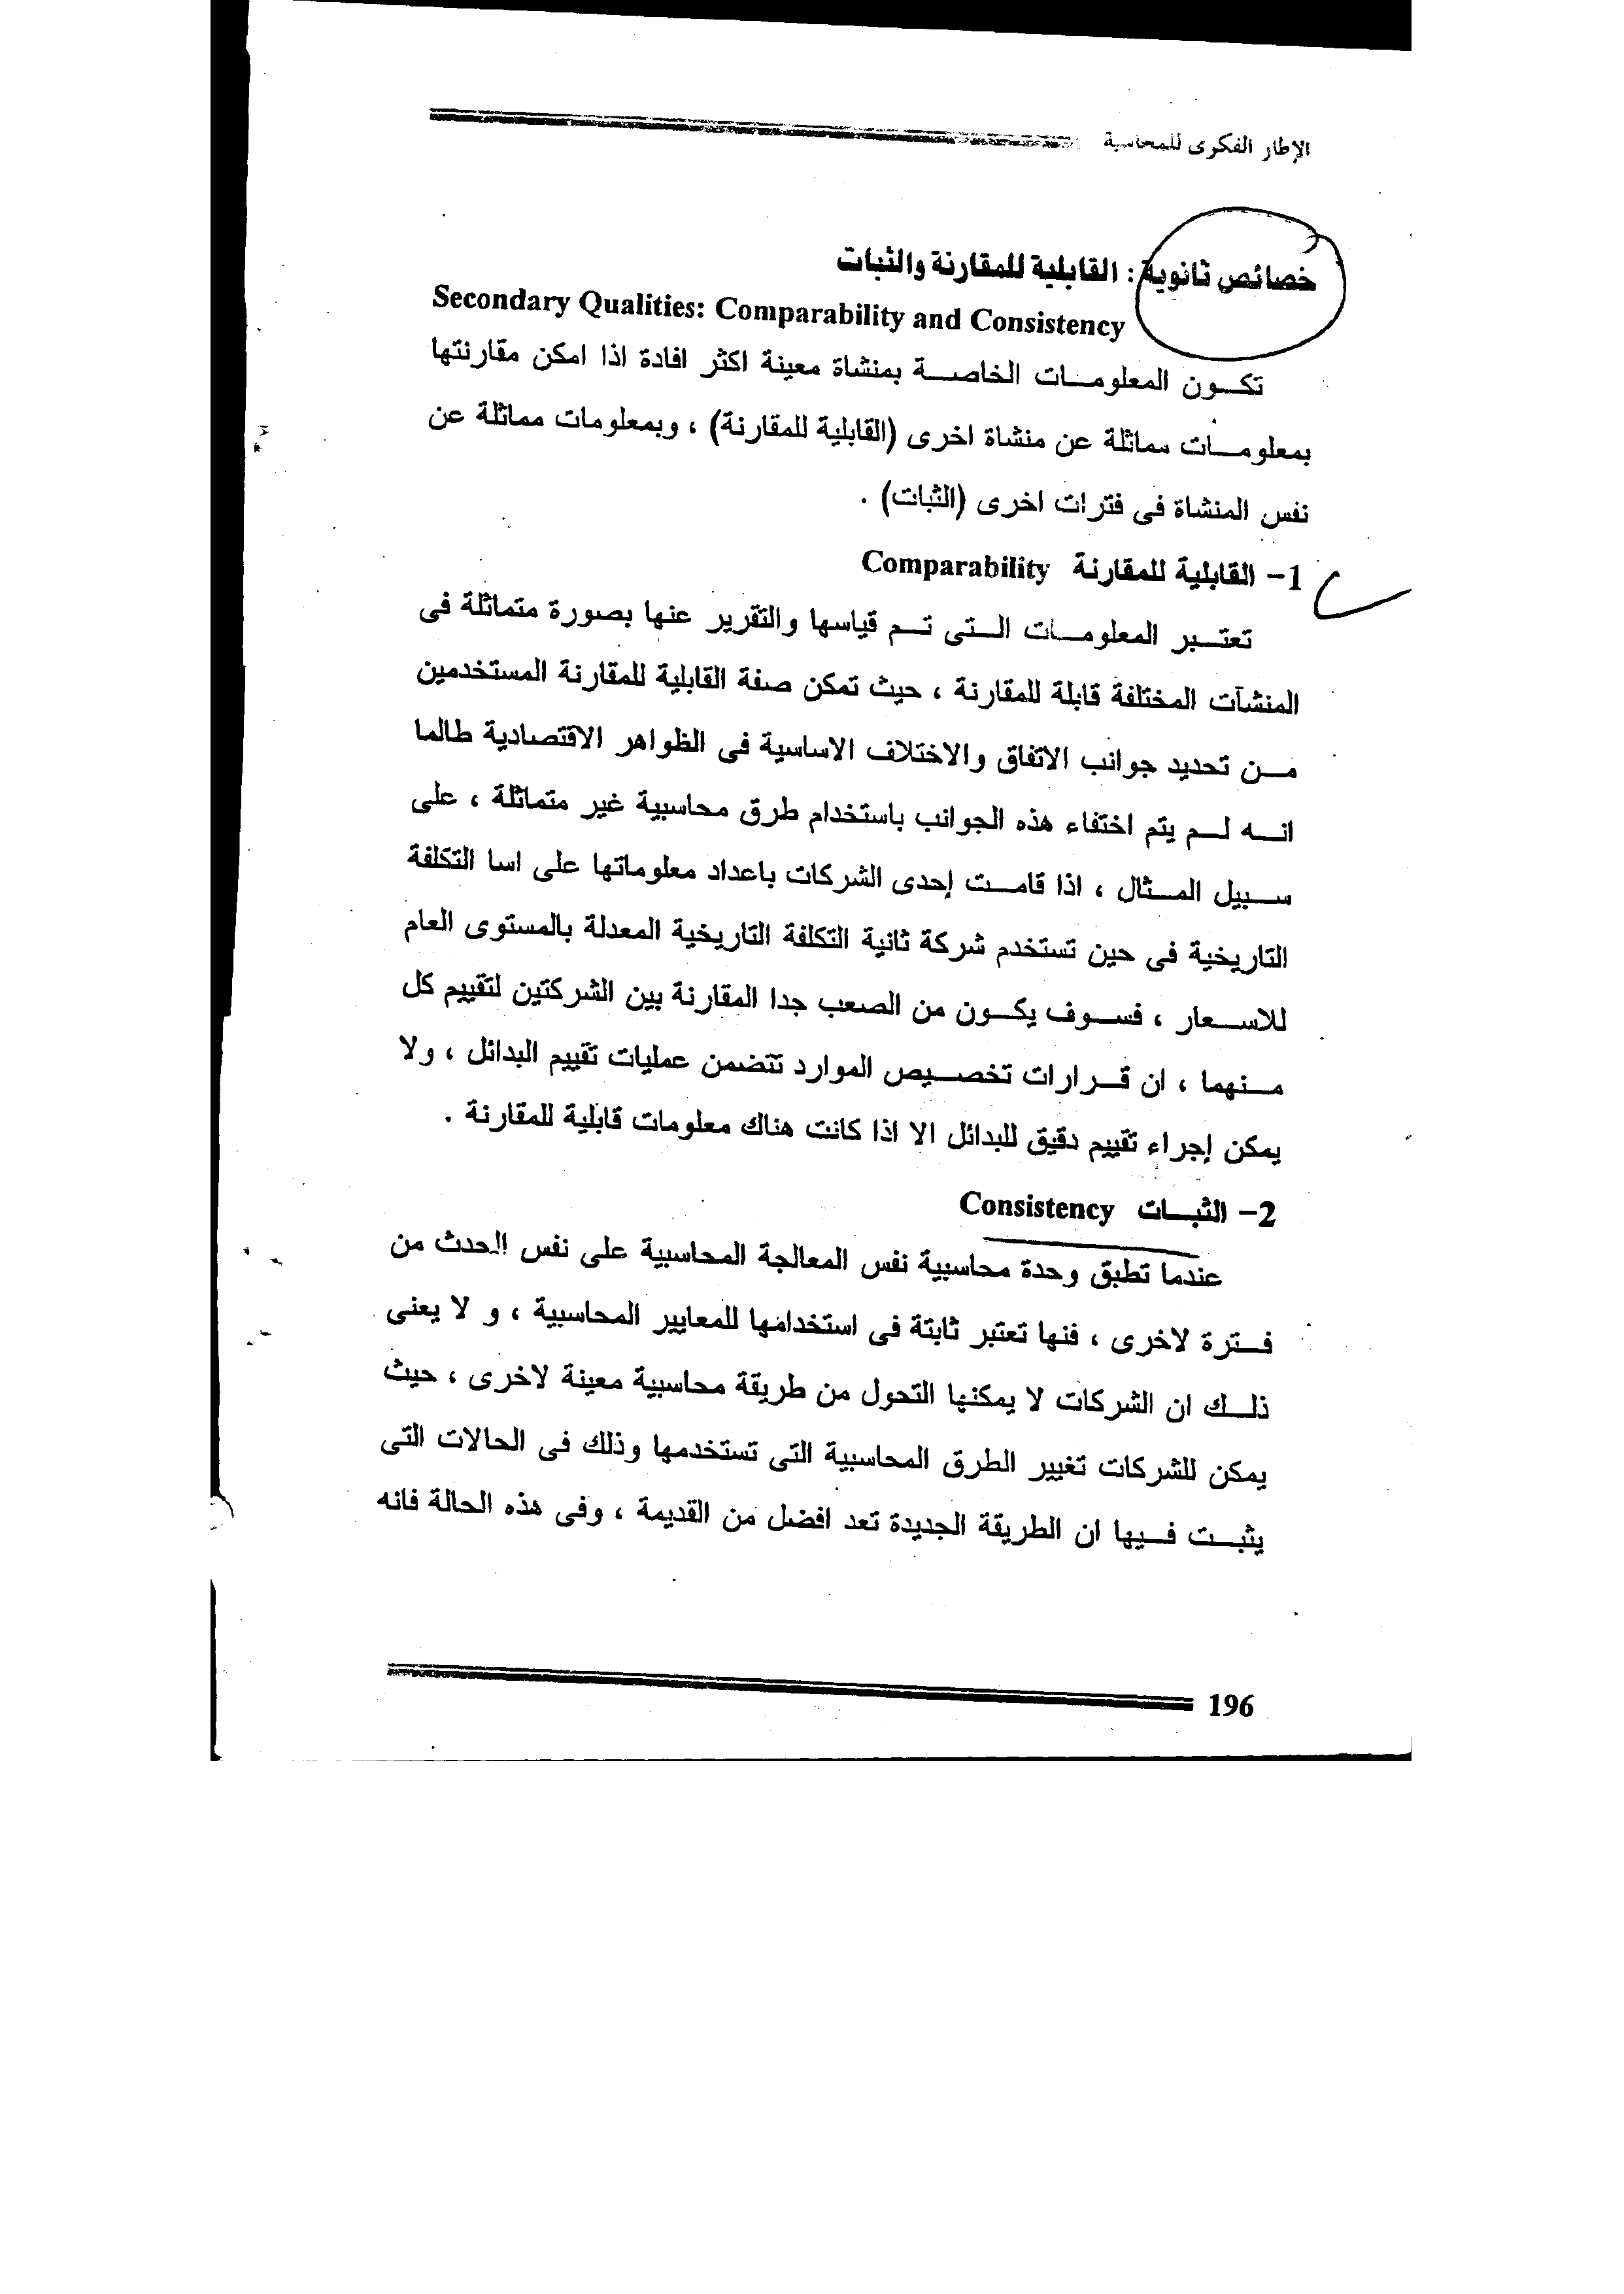 الإطار الفكرى للمحاسبة
خصائص ثانوية : القابلية للمقارنة والثبات
Secondary Qualities: Comparability and Consistency
تكون المعلومات الخاصة بمنشاة معينة اكثر افادة اذا امكن مقارنتها
بمعلومات مماثلة عن منشاة اخرى (القابلية للمقارنة) ، وبمعلومات مماثلة عن
نفس المنشاة فى فترات اخرى (الثبات) .
1- القابلية للمقارنة Comparability
تعتبر المعلومات التى تم قياسها والتقرير عنها بصورة متماثلة فى
المنشآت المختلفة قابلة للمقارنة ، حيث تمكن صفة القابلية للمقارنة المستخدمين
من تحديد جوانب الاتفاق والاختلاف الاساسية فى الظواهر الاقتصادية طالما
انه لم يتم اختفاء هذه الجوانب باستخدام طرق محاسبية غير متماثلة ، على
سبيل المثال ، اذا قامت إحدى الشركات باعداد معلوماتها على اسا التكلفة
التاريخية فى حين تستخدم شركة ثانية التكلفة التاريخية المعدلة بالمستوى العام
للاسعار ، فسوف يكون من الصعب جدا المقارنة بين الشركتين لتقييم كل
منهما ، ان قرارات تخصيص الموارد تتضمن عمليات تقييم البدائل ، ولا
يمكن إجراء تقييم دقيق للبدائل الا اذا كانت هناك معلومات قابلية للمقارنة .
2- الثبات Consistency
عندما تطبق وحدة محاسبية نفس المعالجة المحاسبية على نفس الحدث من
فترة لاخرى ، فنها تعتبر ثابتة فى استخدامها للمعايير المحاسبية ، و لا يعنى
ذلك ان الشركات لا يمكنها التحول من طريقة محاسبية معينة لاخرى ، حيث
يمكن للشركات تغيير الطرق المحاسبية التى تستخدمها وذلك فى الحالات التى
يثبت فيها ان الطريقة الجديدة تعد افضل من القديمة ، وفى هذه الحالة فانه
196